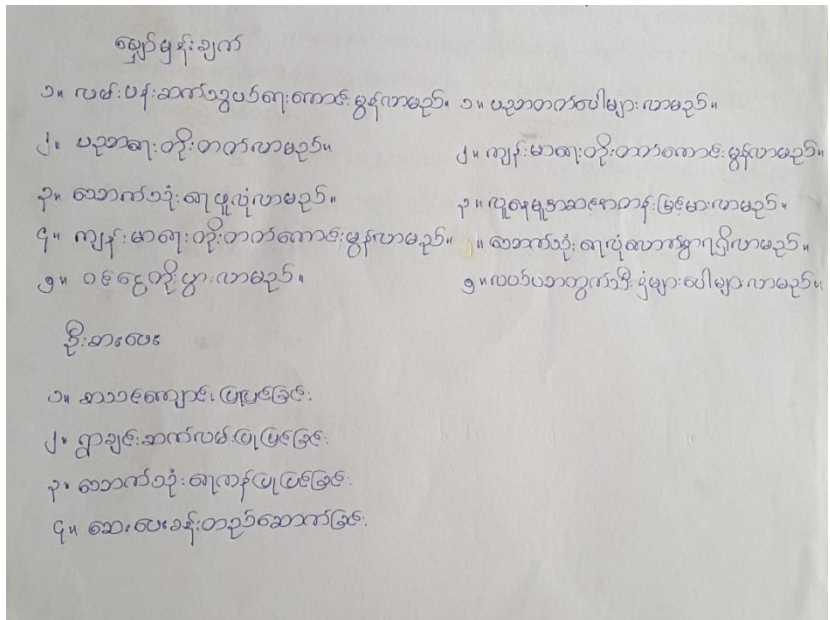 မျှော်မှန်းချက်
၁။ လမ်းပန်းဆက်သွယ်ရေးကောင်းမွန်လာမည်။
၂။ ပညာရေးတိုးတက်လာမည်။
၃။ သောက်သုံးရေဖူလုံလာမည်။
၄။ ကျန်းမာရေးတိုးတက်ကောင်းမွန်လာမည်။
၅။ ဝင်ငွေတိုးပွားလာမည်။
၁။ ပညာတတ်ပေါများလာမည်။
၂။ ကျန်းမာရေးတိုးတက်ကောင်းမွန်လာမည်။
၃။ လူနေမှုအဆင့်အတန်းမြင့်မားလာမည်။
။ သောက်သုံးရေလုံလောက်စွာရရှိလာမည်။
၅။ လယ်ယာထွက်သီးနှံများပေါများလာမည်။
ဦးစားပေး
၁။ စာသင်ကျောင်းပြုပြင်ခြင်း
၂။ ရွာချင်းဆက်လမ်းပြုပြင်ခြင်း
၃။ သောက်သုံးရေကန်ပြုပြင်ခြင်း
၄။ ဆေးပေးခန်းတည်ဆောက်ခြင်း